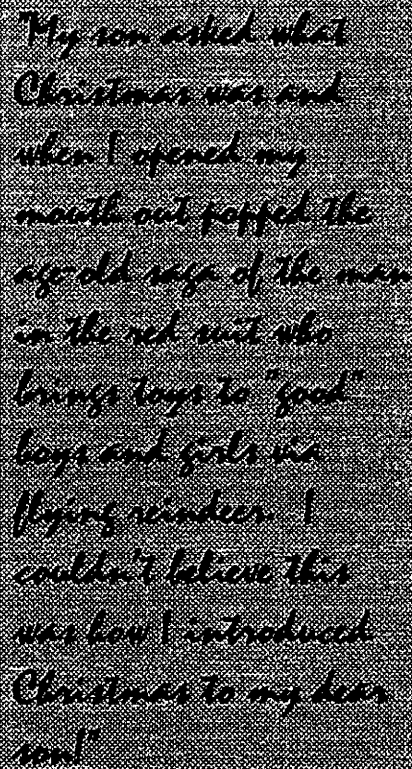 "My son asked what
Christmas was and
when I opened my
mouth out popped the
age-old saga of the man
in the red suit who
brings toys to "good"
boys and girls via
flying reindeer. I
couldn't believe this
was how I introduced
Christmas to my dear
son!"